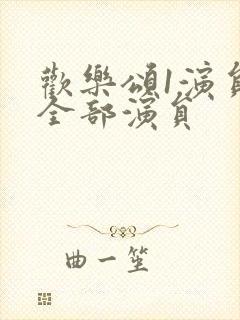 歡樂頌1演員
全部演員
曲一笙